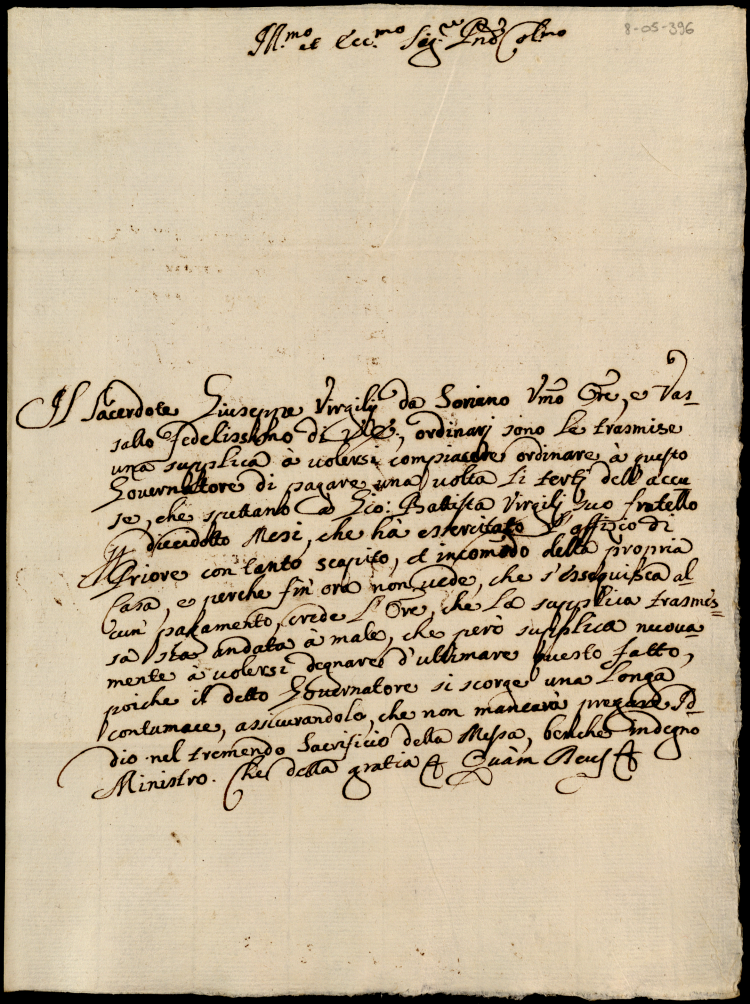 Ill.mo et Ecc.mo Sig.re Pnē Col.mo
8-05-396
Il Sacerdote Giuseppe Virgilij da Soriano Vmō Ore, e Vas-
sallo fedelissimo di V.E., ordinarj sono le trasmise
una supplica à volersi compiacere ordinare à questo
Governatore di pagare una volta li terti dell'accu
se, che spettano à Gio: Battista Virgilij suo fratello
p diecidotto Mesi, che hà esercitato l'offico di
Priore con tanto scapito, et incomodo della propria
Casa, e perche fin' ora non vede, che s'essequisca al-
cun' pagamento, crede l'Ore, che la supplica trasmes-
sa sia andata à male, che però supplica nuova
mente à volersi degnare d'ultimare questo fatto,
poiche il detto Governatore si scorge una longa
contumace, assicurandolo, che non mancarà pregare Id-
dio nel tremendo Sacrificio della Messa, benche indegno
Ministro. Che della gratia & Quàm Deus &